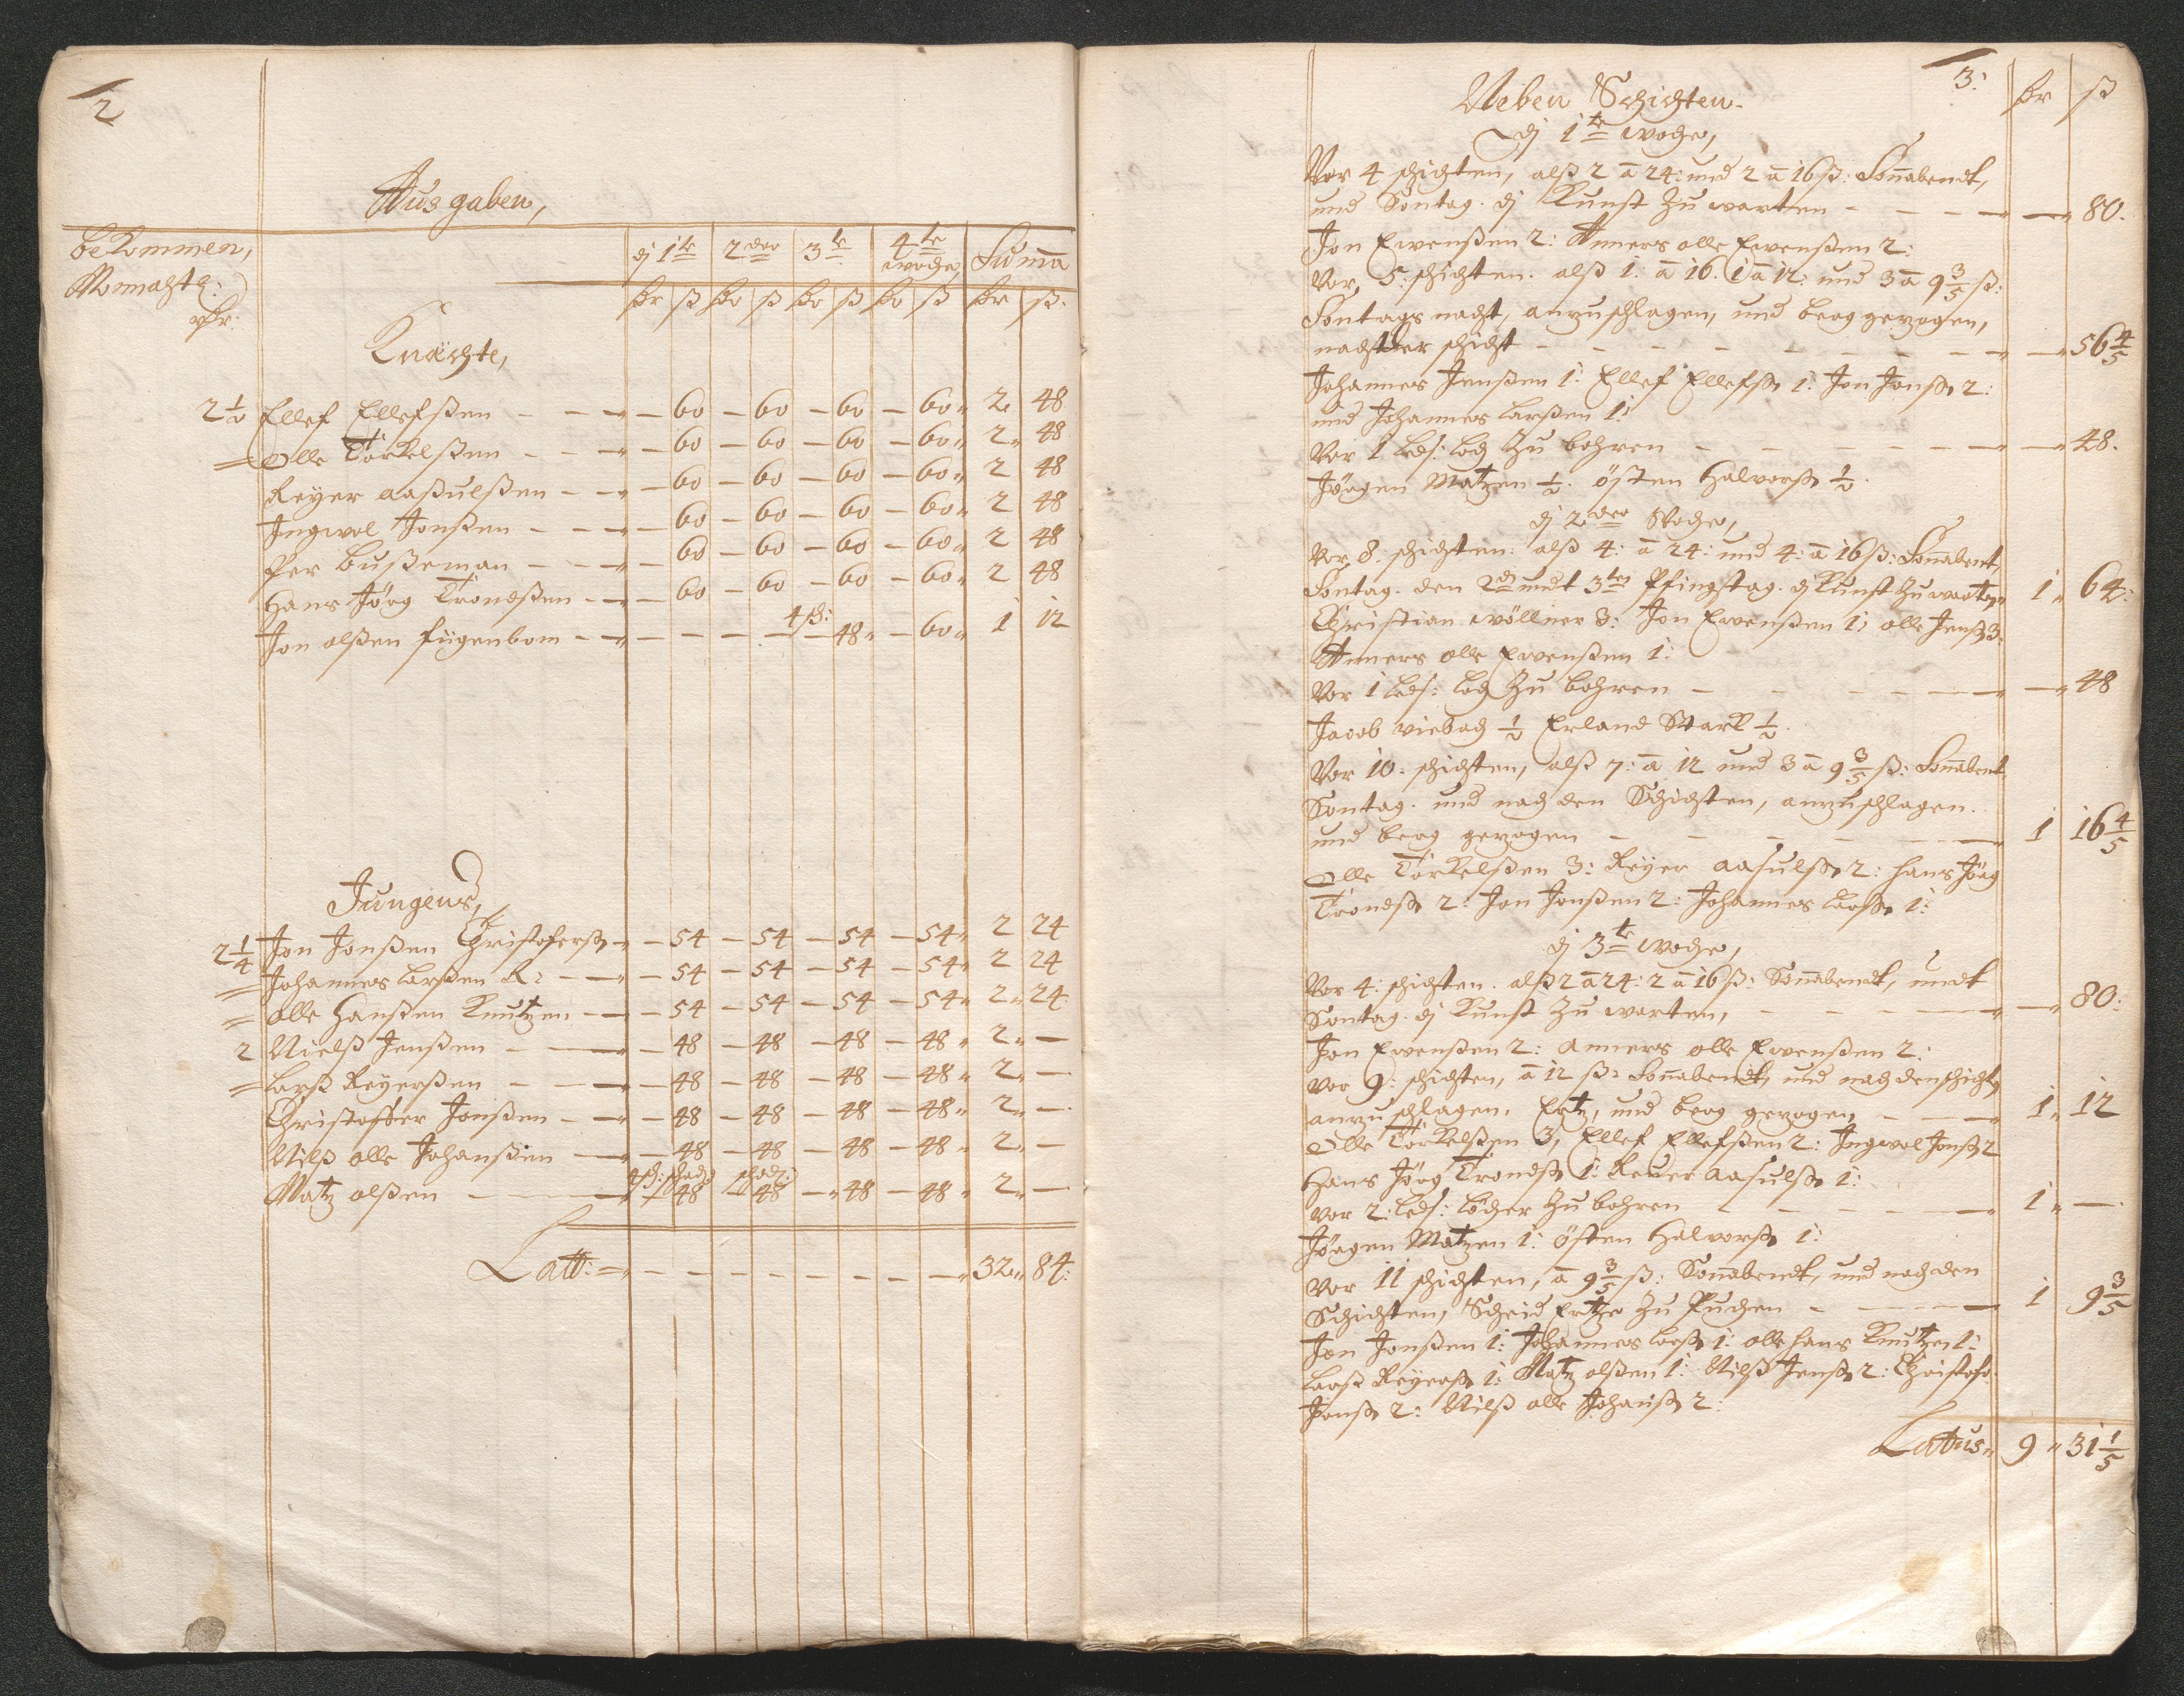 2
Ausgaben,
bekommen, dj 1te 2dere 3te 4te woche Suma
Monnahtl:
rthr: thr ß thr ß thr ß thr ß thr ß.
Knächte,
2 1/2 Ellef Ellefßen - - - 60 - 60 - 60 - 60 " 2 48
= Olle Torkelßen - - - 60 - 60 - 60 - 60 " 2 " 48
Reÿer aaßulßen - - - 60 - 60 - 60 - 60 " 2 48
Ingwol Jonßen - - - 60 - 60 - 60 - 60 " 2 48
Per Bußeman - - - 60 - 60 - 60 - 60 " 2 48
Hans Jörg Tronßen - - 60 - 60 - 60 - 60 " 2 48
4 sch:
Jon olßen fügenbom - - - - - - 48 " - 60 " 1 12
Jungens,
2 1/4 Jon Jonßen Christoferß - 54 - 54 - 54 - 54 " 2 24
= Johannes Larßen R: - - 54 - 54 - 54 - 54 " 2 24
= Olle Hanßen Knutzen - - 54 - 54 - 54 - 54 " 2 " 24
2 Nielß Jenßen - - 48 - 48 - 48 - 48 " 2 " -
= Larß Reÿerßen - - 48 - 48 - 48 - 48 " 2 " -
Christoffer Jonßen - - 48 - 48 - 48 - 48 " 2 " -
Nilß olle Johanßen - - 48 - 48 - 48 - 48 " 2 " -
Matz olßen - - 48 - 48 - 48 - 48 " 2 " -
Latt: - - - - - - - - 32 " 84:
3:
Neben Schichten. thr ß
dj 1te woche,
Vor 4 schichten, alß 2 a 24: und 2 a 16 ß: Sonnabendt,
und Sontag. dj Kunst Zu warten - - - - 80.
Jon Ewenßen 2: Anners olle Ewenßen 2:
Vor, 5: schichten. alß 1: a 16. 1 a 12: und 3 a 9 3/5 ß:
Sontags nacht, anzuschlagen, und berg gezogen,
nacht der schicht - - - - - - - 56 4/5
Johannes Jenßen 1: Ellef Ellefß 1: Jon Jonß 2:
und Johannes Larßen 1:
Vor 1 Leds: Loch Zu bohren - - - - - 48.
Jörgen Matzen 1/2. östen Halvorß 1/2.
dj 2dere Woche,
Vor, 8: schichten: alß 4: a 24: und 4: a 16 ß: Sonnabent,
Sontag. den 2den undt 3ten Pfingstag. dj Kunst Zu warten " 1 " 64:
Christian wöllner 3: Jon Ewenßen 1: olle Jenß 3:
Anners olle Ewenßen 1:
Vor 1 Leds: Loch Zu bohren - - - - - 48
Jacob viebach 1/2 Erland Stark 1/2.
Vor 10: schichten, alß 7: a 12 und 3 a 9 3/5 ß: Sonnabent,
Sontag. und nach den Schichten, anzuschlagen.
und berg gezogen - - - - - 1 16 4/5
Olle Torkelßen 3: Reÿer aasulß 2: Hans Jörg
Tronß 2: Jon Jonßen 2: Johannes Larß 1:
dj 3te woche,
Vor 4: schichten. alß 2 a 24: 2 a 16 ß: Sonnabendt, undt
Sontag. dj Kunst Zu warten, - - - - - 80:
Jon Ewenßen 2: anners olle Ewenßen 2:
Vor 9: schichten, a 12 ß: Sonnabendt, und nach den schicht,
anzuschlagen, Ertz, und berg gezogen, - - - 1 " 12
Olle Torkelßen 3, Ellef Ellefßen 2: Ingwol Jonß 2
Hans Jörg Tronß 1: Reÿer Aasulß 1:
Vor 2: Leds: Löcher Zu bohren - - - - 1 " -
Jörgen Matzen 1: östen Halvorß 1:
Vor 11 schichten, a 9 3/5 ß: Sonnabendt, und nach den
Schichten, Scheid Ertze Zu Puchen - - - 1 9 3/5
Jon Jonßen 1: Johannes Larß 1: olle Hans Knutzen 1:
Larß Reÿerß 1: Matz olßen 1: Nilß Jenß 2: Christofr
Jonß 2: Nilß olle Johanß 2:
Lattus " 9 " 31 1/5